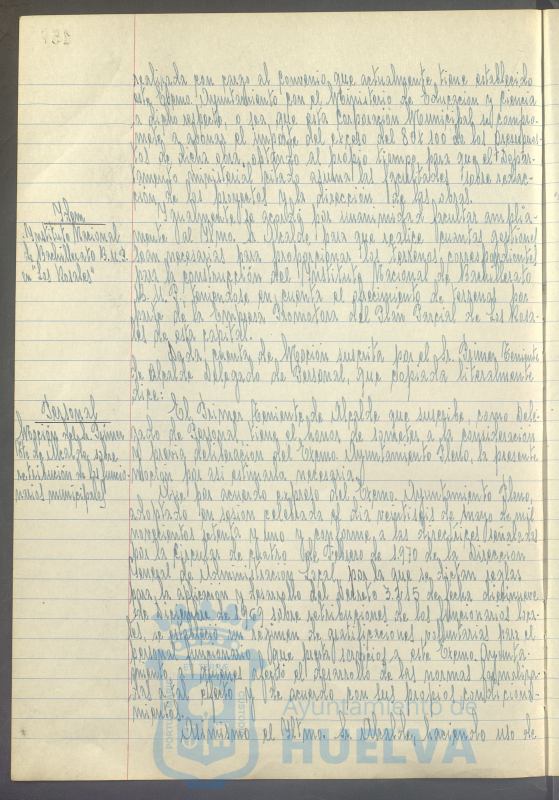 realizada con cargo al convenio que actualmente tiene establecido
este Excmo. Ayuntamiento con el Ministerio de Educación y Ciencia
a dicho respecto, o sea que esta Corporación Municipal se compro-
mete a abonar el importe del exceso del 80% 100 de los Presupues-
tos de dicha obra, optando al propio tiempo para que el Depar-
tamento ministerial citado asuma las facultades sobre redac-
ción de los proyectos y la dirección de las obras.
Item
Instituto Nacional
de Bachillerato B.U.P.
en "Los Rosales"
Igualmente se acordó por unanimidad facultar amplia-
mente al Iltmo. Sr. Alcalde para que realice cuantas gestiones
sean necesarias para proporcionar los terrenos correspondientes
para la construcción del Instituto Nacional de Bachillerato
B.U.P. teniéndose en cuenta el ofrecimiento de terrenos por
parte de la Empresa Promotora del Plan Parcial de Los Rosa-
les de esta capital.
Dada cuenta de Moción suscrita por el Sr. Primer Teniente
de Alcalde Delegado de Personal, que copiada literalmente
dice:
Personal
Moción del Sr. Primer
Tte de Alcalde sobre
retribución de funcio-
narios municipales
El Primer Teniente de Alcalde que suscribe, como Dele-
gado de Personal tiene el honor de someter a la consideración
y previa deliberación del Excmo. Ayuntamiento Pleno, la presente
moción por así estimarla necesaria.
Que por acuerdo expreso del Excmo. Ayuntamiento Pleno,
adoptado en sesión celebrada el día veintiseis de mayo de mil
novecientos setenta y uno y conforme a las directrices señaladas
por la Circular de cuatro de Febrero de 1970 de la Dirección
General de Administración Local, por la que se dictan reglas
para la aplicación y desarrollo del Decreto 3.215 de fecha diecinueve
de diciembre de 1969 sobre retribuciones de los funcionarios loca-
les, se estableció un régimen de gratificaciones voluntarias para el
personal funcionario que presta servicios a este Excmo. Ayunta-
miento, a quienes afectó el desarrollo de las normas formaliza-
das al efecto y de acuerdo con sus propios condiciona-
mientos.
Asimismo el Iltmo. Sr. Alcalde, haciendo uso de
Ayuntamiento de
HUELVA